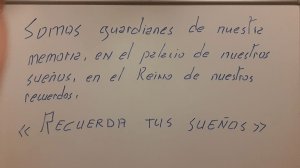 Somos guardianes de nuestra
memoria, en el palacio de nuestros
sueños, en el Reino de nuestros
recuerdos.
« RECUERDA TUS SUEÑOS »